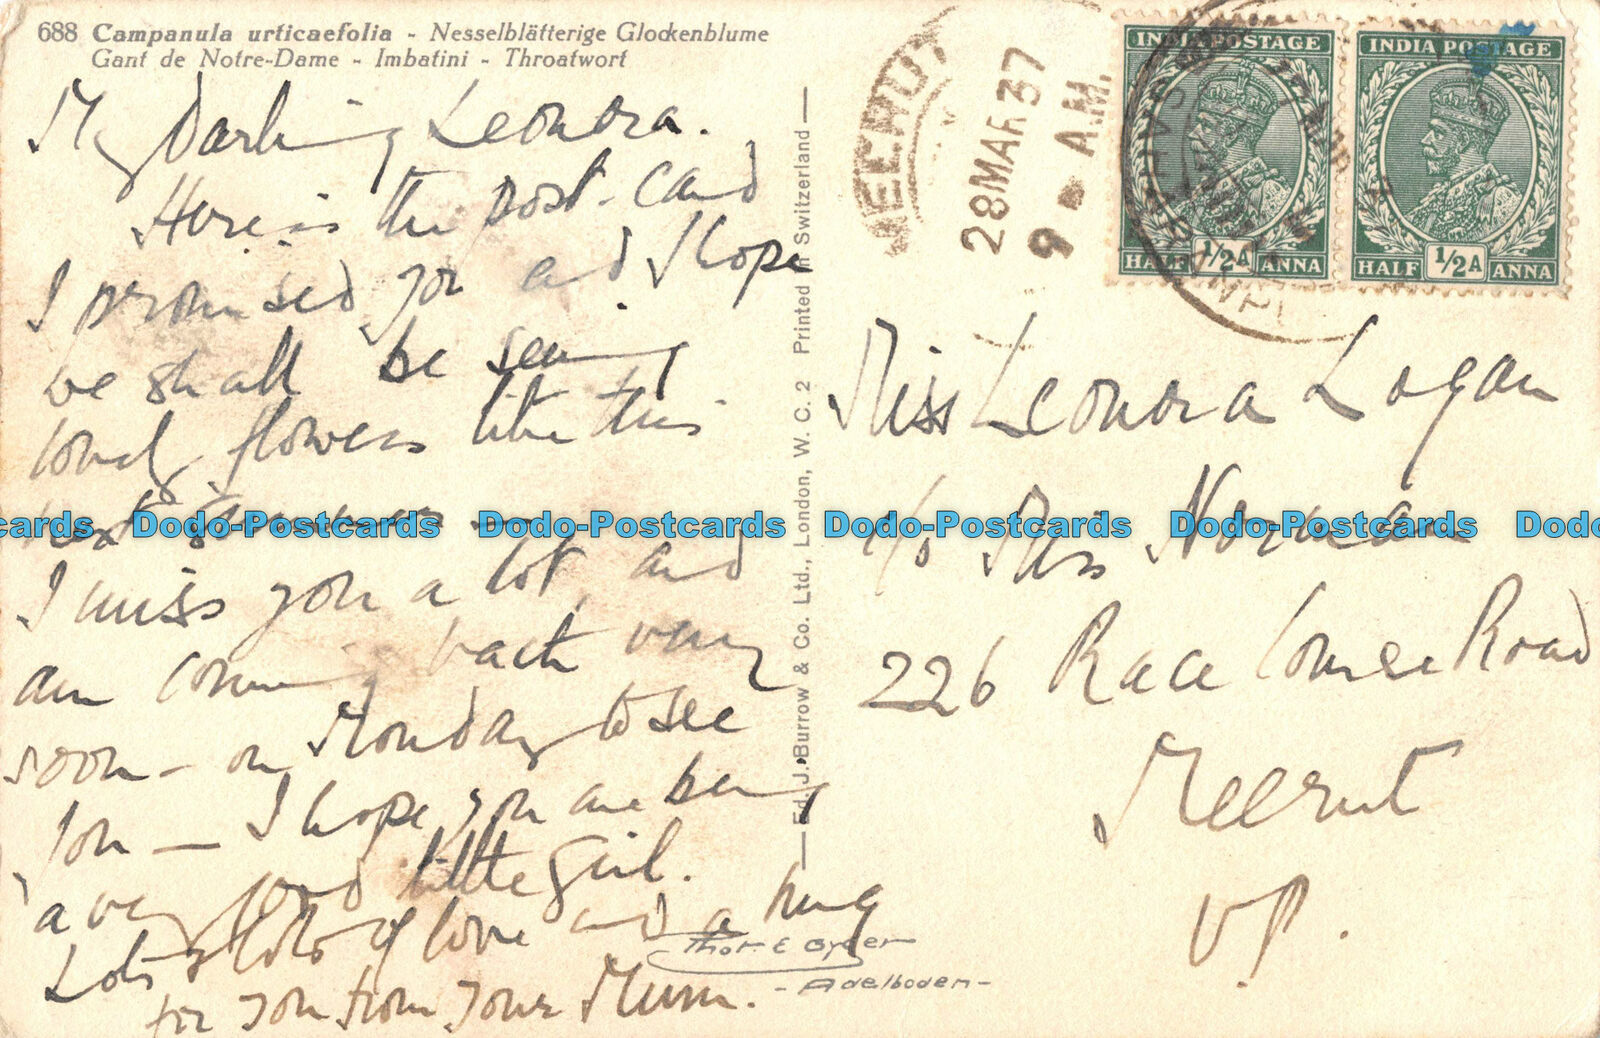 688 Campanula urticaefolia - Nesselblätterige Glockenblume
Gant de Notre-Dame - Imbatini - Throatwort
My Darling Leonora.
Here is the post-card
I promised you and I hope
we shall be seeing
lovely flowers like this
next summer —
I miss you a lot, and
am coming back very
soon — on Monday to see
you — I hope you are being
a very good little girl.
Lots & lots of love and a hug
for you from your Mum.
Thor. E Gyger
- Adelboden -
Ed. J. Burrow & Co. Ltd., London, W. C. 2 Printed in Switzerland
MEERUT
28 MAR 37
9 - A.M.
INDIA POSTAGE
HALF 1/2A ANNA
INDIA POSTAGE
HALF 1/2A ANNA
Miss Leonora Logan
c/o Mrs Norman
226 Race Course Road
Meerut
U.P.
Dodo-Postcards Dodo-Postcards Dodo-Postcards Dodo-Postcards